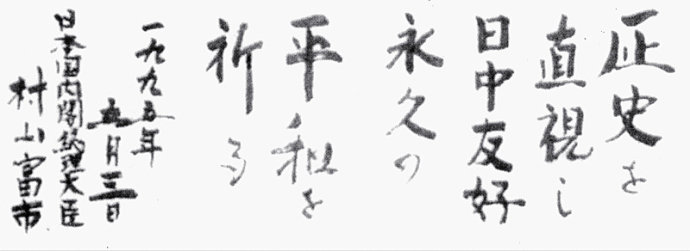 正史を
直視し
日中友好
永久の
平和を
祈る
一九九五年
五月三日
日本国内閣総理大臣
村山富市